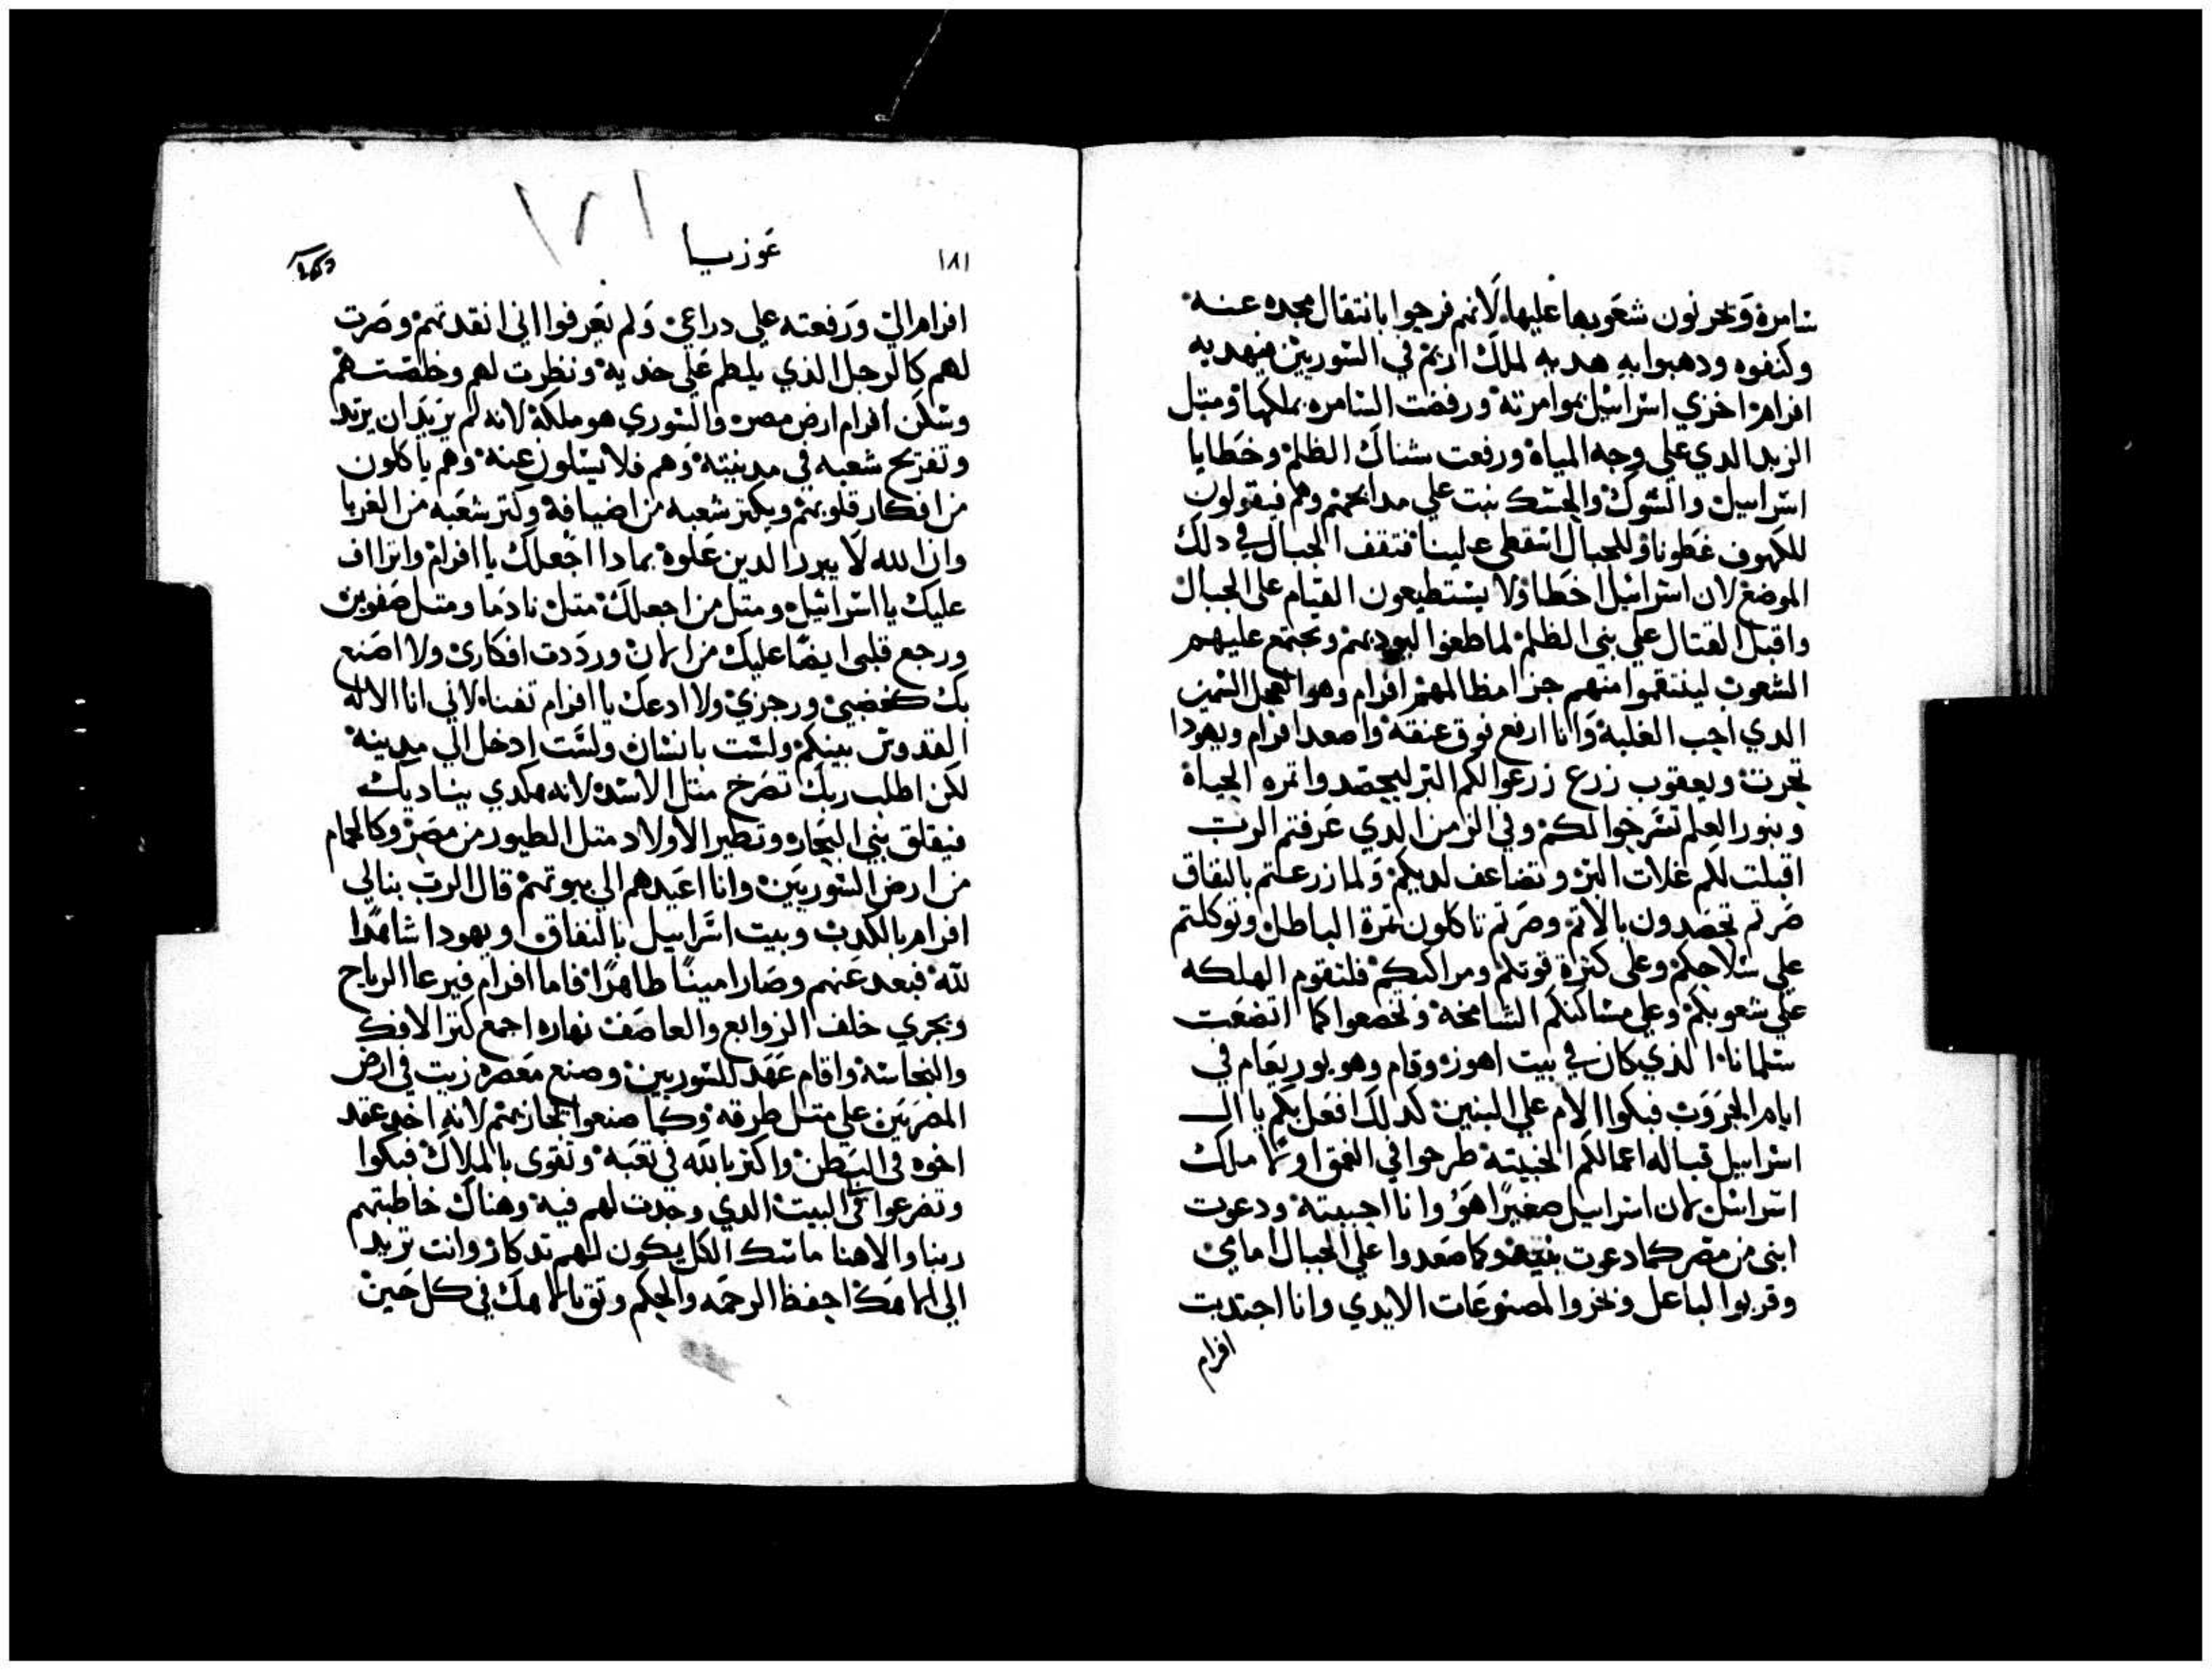 سامرة ويحزنون شعوبها عليها لانهم فرحوا بانتقال مجده عنه
وكتفوه ودهبوا به هديه لملك اريم في السوريين فيهديه
افرام اخزي اسراييل بموامرته ورفضت السامره بملكها ومتل
الزبد الدي علي وجه المياه ورفعت هناك الظلم وخطايا
اسراييل والشوك والحسك ينبت علي مدابحهم وهم فيقولون
للكهوف غطونا وللجبال اسقطي علينا فتقف الجبال في دلك
الموضع لان اسراييل اخطا ولا يستطيعون القيام علي الجبال
واقبل القتال علي بني الظلم لما طغوا وتجتمع عليهم
الشعوب لينتقموا منهم جزا مظالمهم افرام وهو العجل السمين
الدي احب الغلبه وانا ارفع فوق عنقه واصعد افرام ويهودا
تحرت ويعقوب زرع زرعوا لكم البر ليحصد واتمره الحياه
وبنور العلم تسرجوا لكم وفي الزمن الدي عرفتم الرب
اقبلت لكم غلات البر وتضاعف لديكم ولما زرعتم بالنفاق
صرتم تحصدون بالاتم وصرتم تاكلون تمرة الباطل وتوكلتم
علي سلاحكم وعلي كترة قوتكم ومراكبكم فلتقوم الهلكه
علي شعوبكم وعلي مساكنكم الشامخه وتخضعوا كما اتضعت
سلمانا الذي كان في بيت اهوز وقام وهو يوريعام في
ايام الحروب فبكوا الام علي البنين كدلك افعل بكم يا ال
اسراييل قباله اعمالكم الخبيته طرحوا في العمق اوتما ملك
اسراييل لان اسراييل صغيرا هو وانا احببته ودعوت
ابني من مصر كما دعوت بنيه وكما صعدوا علي الجبال امامي
وقربوا لباعل وبخروا لمصنوعات الايدي وانا اجتدبت
افرام
١٨١
عوزيا
افرام الي ورفعته علي دراعي ولم يعرفوا اني انقدتهم وصرت
لهم كالرجل الذي يلطم علي خديه ونظرت لهم وخلصتهم
وسكن افرام ارض مصر والسوري هو ملكه لانه لم يريد ان يرتد
وتفرح شعبه في مدينته وهم فلا يسلون عنه وهم ياكلون
من افكار قلوبهم ويكتر شعبه من اضيافه وكتر شعبه من الغربا
وان الله لا يبرر الدين علوه بمادا اجعلك يا افرام واتراف
عليك يا اسراييل ومتل من اجعلك متل نادما ومتل صفوين
ورجع قلبي ايضا عليك من الان ورددت افكاري ولا اصنع
بك كغضبي ورجزي ولا ادعك يا افرام تفنا لاني انا الاله
القدوس بينكم ولست بانسان ولست ادخل الي مدينه
لكن اطلب ربك تصرخ متل الاسد لانه هكدي يناديك
فيقلق بني البحار وتطير الاولاد متل الطيور من مصر وكالحمام
من ارض السوريين وانا اعيدهم الي بيوتهم قال الرب بنالي
افرام بالكدب وبيت اسراييل بالنفاق ويهودا شاهدا
لله فبعد عنهم وصار امينا طاهرا فاما افرام فيرعا الرياح
ويجري خلف الزوابع والعاصف نهاره اجمع كتر الافك
والنجاسه واقام عهد للسوريين وصنع معصره زيت في ارض
المصريين علي متل طرقه وكما صنعوا بجازيهم لانه اخد عقد
اخوه في البطن واكتر بالله في تعبه وتقوي بالملاك فبكوا
وتضرعوا في البيت الدي وجدت لهم فيه وهناك خاطبتهم
ربنا والاهنا ماسك الكل يكون لهم تدكار وانت تريد
الي الهك احفظ الرحمه والحكم وتق بالهك في كل حين